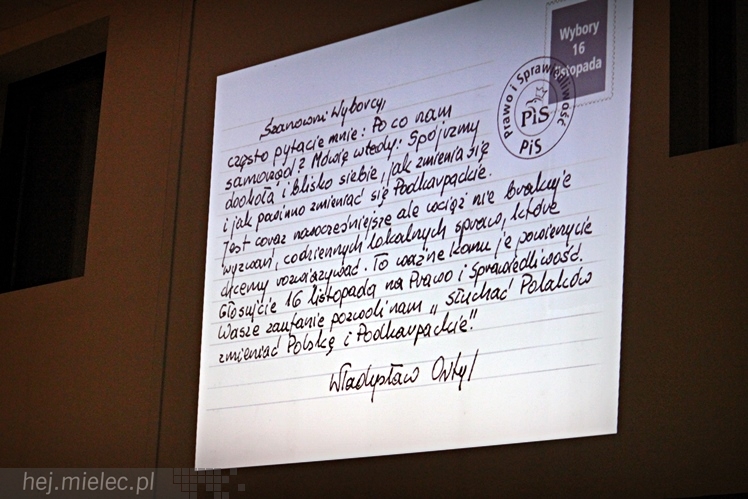 Wybory
16
listopada
Prawo i Sprawiedliwość
PiS
PiS
Szanowni Wyborcy,
często pytacie mnie: Po co nam
samorząd? Mówię wtedy: Spójrzmy
dookoła i blisko siebie, jak zmienia się
i jak powinno zmieniać się Podkarpackie.
Jest coraz nowocześniejsze ale wciąż nie brakuje
wyzwań, codziennych lokalnych spraw, które
chcemy rozwiązywać. To ważne komu je powierzycie
Głosujcie 16 listopada na Prawo i Sprawiedliwość.
Wasze zaufanie pozwoli nam „słuchać Polaków
zmieniać Polskę i Podkarpackie".
Władysław Ortyl
hej.mielec.pl